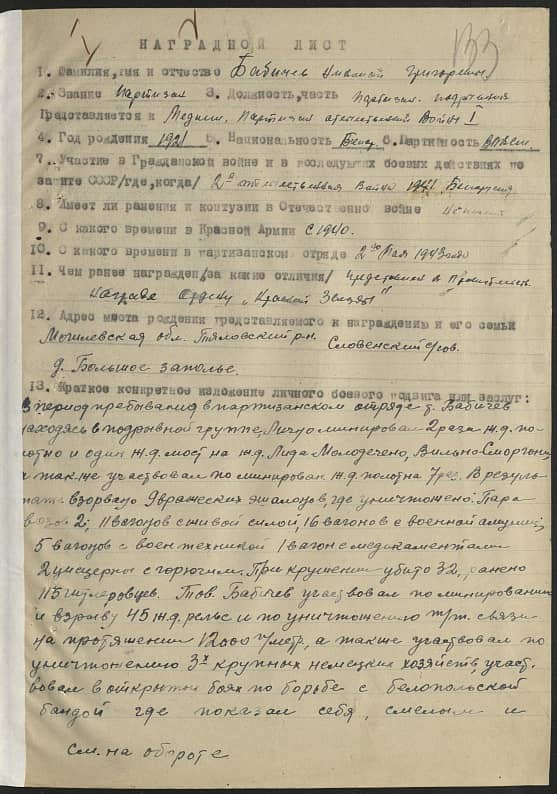 НАГРАДНОЙ ЛИСТ
1. Фамилия, имя и отчество Бабичев Николай Григорьевич
2. Звание Партизан 3. Должность, часть Партизан. подрывник
Представляется к Медали, Партизан отечественной Войны I
4. Год рождения 1921 5. Национальность Белор. 6. Партийность
7. Участие в Гражданской войне и в последующих боевых действиях по
защите СССР/где, когда/ 2я отечественная Война 1941 Белоруссия
8. Имеет ли ранения и контузии в Отечественной войне
9. С какого времени в Красной Армии с 1940.
10. С какого времени в партизанском отряде 2го Мая 1943 года
11. Чем ранее награжден/за какие отличия/ представлен к Правительств.
награде Ордену "Красной Звезды"
12. Адрес места рождения представляемого к награждению и его семьи
Могилевская обл. р-н. Словенский с/сов.
д. Большое заполье.
13. Краткое конкретное изложение личного боевого подвига или заслуг:
В период пребывания в партизанском отряде т. Бабичев
находясь в подрывной группе, Лично минировал 2 раза ж.д. по-
лотно и один ж.д. мост на ж.д. Лида-Молодечено, Вильно-Сморгонь
а также участвовал по минирован ж.д. полотна 7 раз. В резуль-
тате взорвано 9 вражеских эшалонов, где уничтожено: Паро
возов 2, 11 вагонов с живой силой, 16 вагонов с военной амуниц,
5 вагонов с воен техникой 1 вагон с медикаментами
2 цистерны с горючим. При крушении убито 32, ранено
115 гитлеровцев. Тов. Бабичев участвовал по минированию
и взрыву 45 ж.д. рельс и по уничтожению т/т. связи
на протяжении 12000 п/метр, а также участвовал по
уничтожению 3х крупных немецких хозяйств, участ-
вовал в открытых боях по борьбе с белопольской
бандой где показал себя, смелым и
см. на обороте